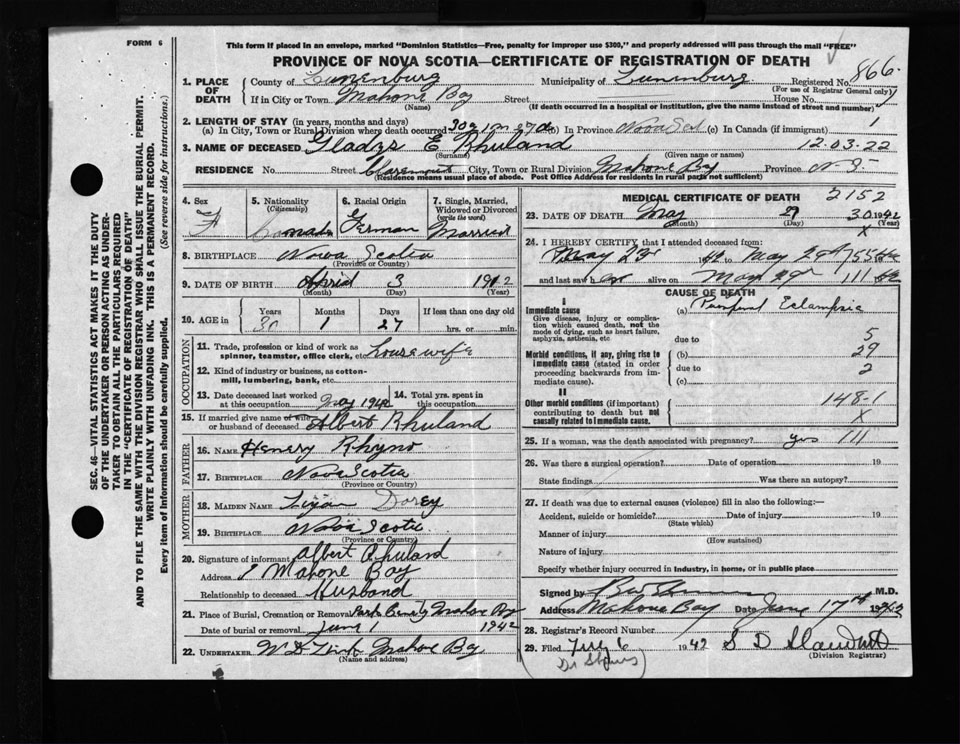 FORM 6
This form if placed in an envelope, marked "Dominion Statistics—Free, penalty for improper use $300," and properly addressed will pass through the mail "FREE"
PROVINCE OF NOVA SCOTIA—CERTIFICATE OF REGISTRATION OF DEATH
1. PLACE OF DEATH County of Lunenburg Municipality of Lunenburg Registered No. 866
(For use of Registrar General only)
If in City or Town Mahone Bay Street House No.
(Name) (If death occurred in a hospital or institution, give name instead of street and number)
2. LENGTH OF STAY (in years, months and days)
(a) In City, Town or Rural Division where death occurred 30 y 1 m 27 d (b) In Province Nova Scot (c) In Canada (if immigrant) 1
3. NAME OF DECEASED Gladys E Rhuland 12.03.22
(Surname) (Given name or names)
RESIDENCE No. Street City, Town or Rural Division Mahone Bay Province N.S.
(Residence means usual place of abode. Post Office Address for residents in rural parts not sufficient)
4. Sex F
5. Nationality (Citizenship)
6. Racial Origin German
7. Single, Married, Widowed or Divorced (write the word) Married
8. BIRTHPLACE Nova Scotia
(Province or Country)
9. DATE OF BIRTH April 3 1912
(Month) (Day) (Year)
10. AGE in Years Months Days If less than one day old
30 1 27 hrs. or min.
OCCUPATION
11. Trade, profession or kind of work as spinner, teamster, office clerk, etc. housewife
12. Kind of industry or business, as cotton-mill, lumbering, bank, etc.
13. Date deceased last worked at this occupation May 1942 14. Total yrs. spent in this occupation
15. If married give name of wife or husband of deceased Albert Rhuland
FATHER
16. NAME Henery Rhyno
17. BIRTHPLACE Nova Scotia
(Province or Country)
MOTHER
18. MAIDEN NAME Dorey
19. BIRTHPLACE Nova Scotia
(Province or Country)
20. Signature of informant Albert Rhuland
Address Mahone Bay
Relationship to deceased Husband
21. Place of Burial, Cremation or Removal Park Cemtry Mahone Bay
Date of burial or removal June 1 1942
22. UNDERTAKER Mahone Bay
(Name and address)
MEDICAL CERTIFICATE OF DEATH 2152
23. DATE OF DEATH May 29 30 1942
(Month) (Day) (Year)
X
24. I HEREBY CERTIFY that I attended deceased from:
May 23rd 1942 to May 29th 755
and last saw her alive on May 29th 111
CAUSE OF DEATH
I
Immediate cause (a) Eclampsia
Give disease, injury or complication which caused death, not the mode of dying, such as heart failure, asphyxia, asthenia, etc
due to 5
Morbid conditions, if any, giving rise to immediate cause (stated in order proceeding backwards from immediate cause). (b) 29
due to 2
(c)
II
Other morbid conditions (if important) contributing to death but not causally related to immediate cause. 148-1
X
25. If a woman, was the death associated with pregnancy? yes 111
26. Was there a surgical operation? Date of operation 19
State findings Was there an autopsy?
27. If death was due to external causes (violence) fill in also the following:—
Accident, suicide or homicide? Date of injury 19
(State which)
Manner of injury
(How sustained)
Nature of injury
Specify whether injury occurred in industry, in home, or in public place
Signed by M.D.
Address Mahone Bay Date June 17th 1942
28. Registrar's Record Number
29. Filed July 6 1942 S D
(Division Registrar)
SEC. 46—VITAL STATISTICS ACT MAKES IT THE DUTY
OF THE UNDERTAKER OR PERSON ACTING AS UNDER-
TAKER TO OBTAIN ALL THE PARTICULARS REQUIRED
IN THE "CERTIFICATE OF REGISTRATION OF DEATH"
AND TO FILE THE SAME WITH THE DIVISION REGISTRAR WHO SHALL ISSUE THE BURIAL PERMIT.
WRITE PLAINLY WITH UNFADING INK. THIS IS A PERMANENT RECORD.
Every item of information should be carefully supplied. (See reverse side for instructions.)